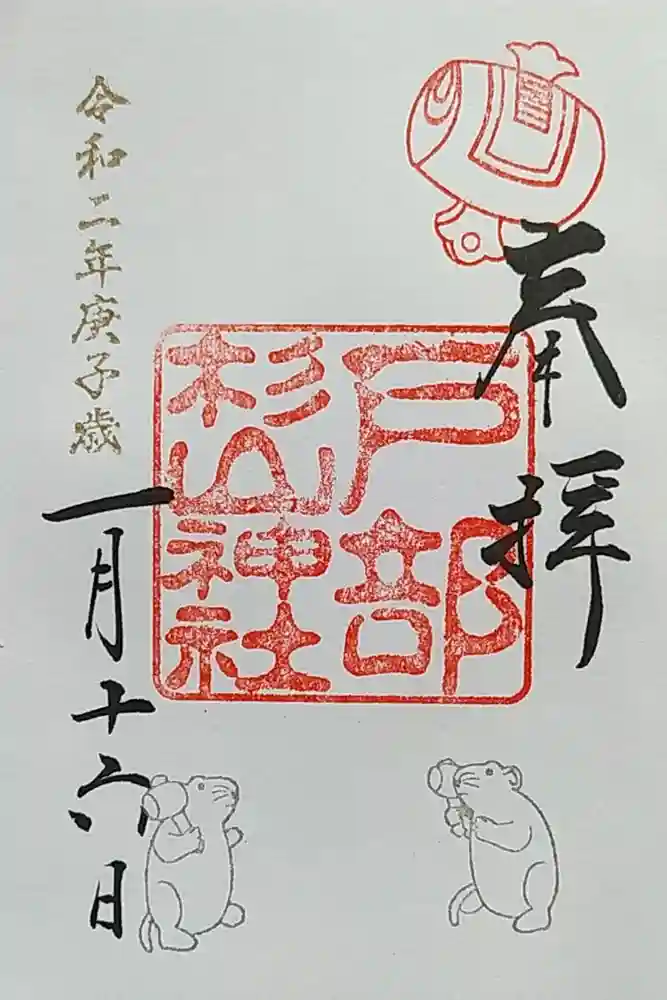 奉拝
戸部
杉山神社
令和二年庚子歳
一月十六日